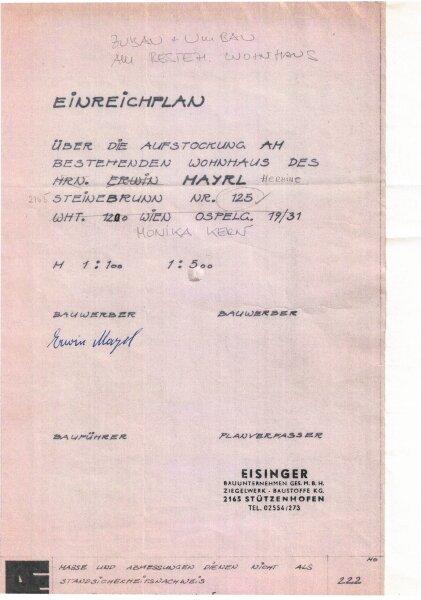 ZUBAU + UMBAU
AM BESTEH. WOHNHAUS
EINREICHPLAN
ÜBER DIE AUFSTOCKUNG AM
BESTEHENDEN WOHNHAUS DES
HRN. ERWIN MAYRL HERMINE
2165 STEINEBRUNN NR. 125
WHT. 1200 WIEN OSPELG. 19/31
MONIKA KERN
M 1:100 1:500
BAUWERBER BAUWERBER
Erwin Mayrl
BAUFÜHRER PLANVERFASSER
EISINGER
BAUUNTERNEHMEN GES. M. B. H.
ZIEGELWERK - BAUSTOFFE KG.
2165 STÜTZENHOFEN
TEL. 02554/273
MASSE UND ABMESSUNGEN DIENEN NICHT ALS
STANDSICHERHEITSNACHWEIS
NO
222